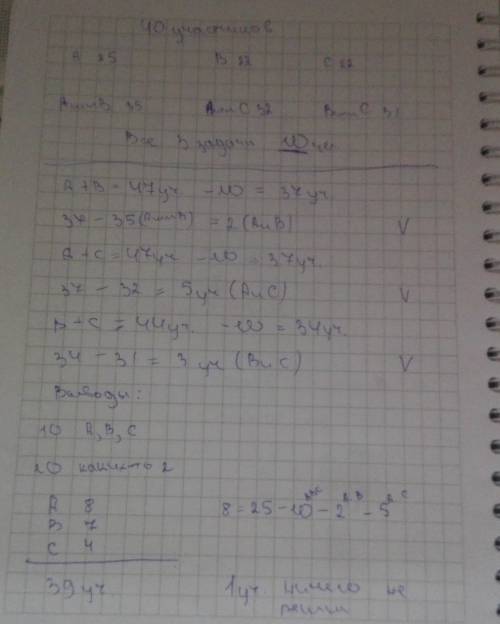 40 участников
A 25 B 22 C 22
AилиB 35 AилиC 32 BилиC 31
Все 3 задачи 10 чел
A+B = 47уч -10 = 37уч.
37 - 35(AилиB) = 2 (AиB) V
A+C = 47уч -10 = 37уч.
37 - 32 = 5уч (AиC) V
B+C = 44уч. -10 = 34уч.
34 - 31 = 3 уч (BиC) V
Выводы:
10 A, B, C
10 какие-то 2
A 8 8 = 25 - 10 - 2 - 5
B 7
C 4
39уч 1уч ничего не
решил